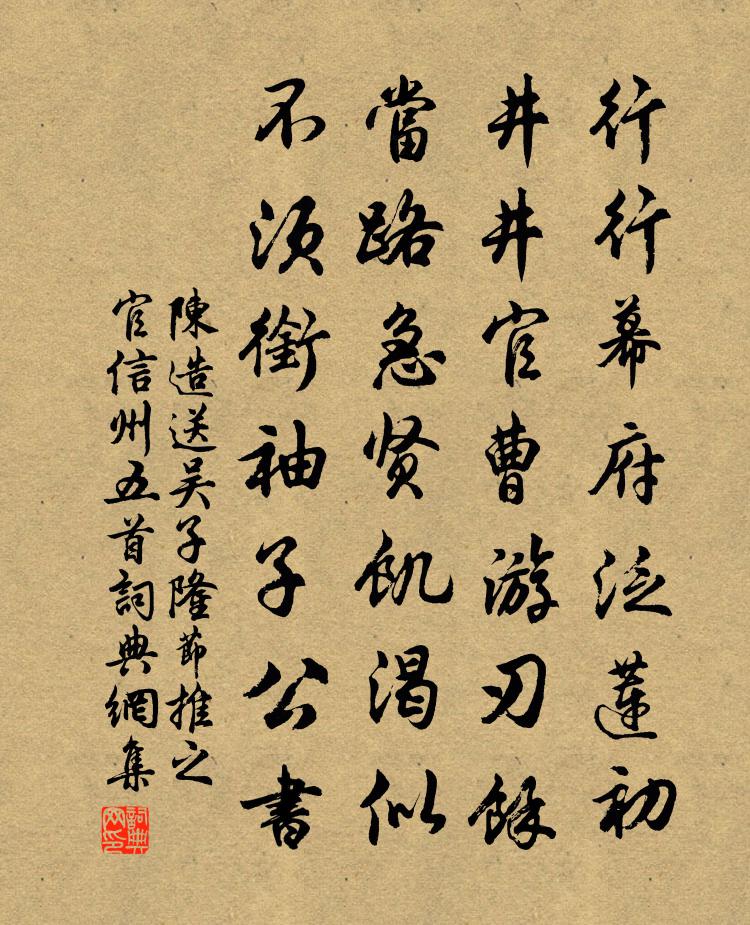 行行幕府泛蓮初
井井官曹游刃餘
當路急贤飢渴似
不須銜袖子公書
陳造送吴子隆節推之
官信州五首詞典網集
詞典网印